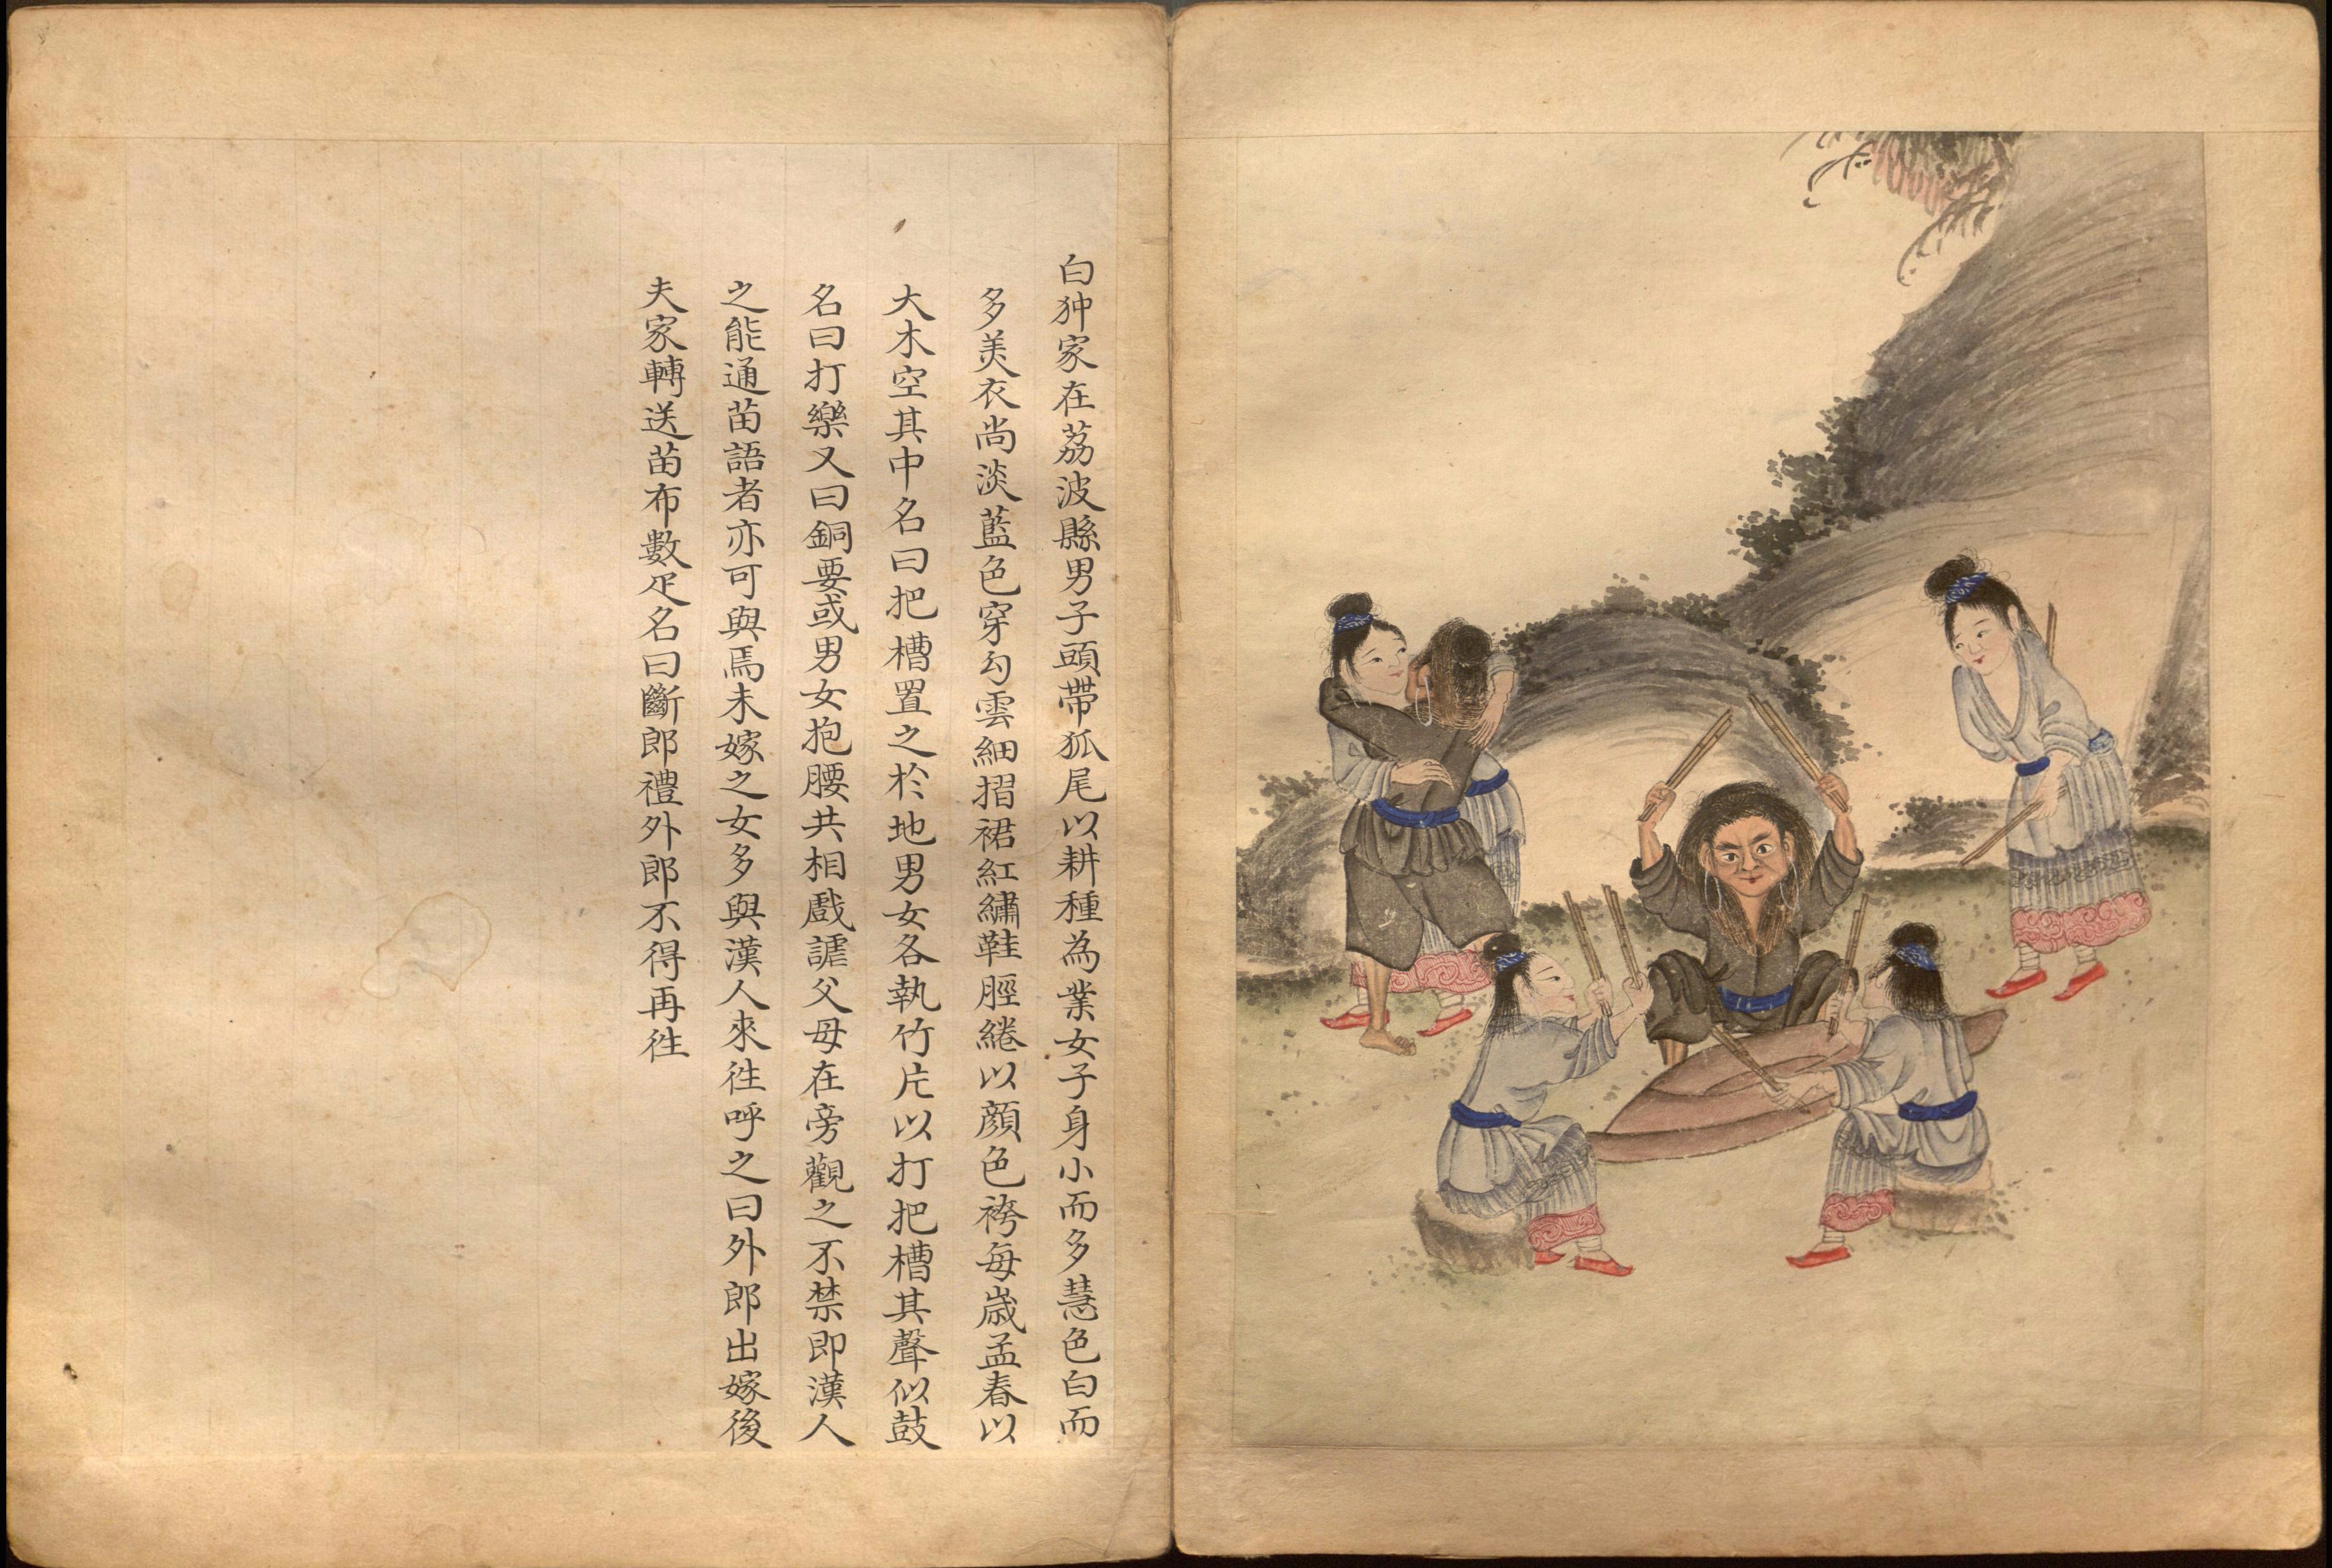 白狆家在荔波縣男子頭帶狐尾以耕種為業女子身小而多慧色白而
多美衣尚淡藍色穿勾雲細摺裙紅繡鞋脛綣以顏色袴每歲孟春以
大木空其中名曰把槽置之於地男女各執竹片以打把槽其聲似鼓
名曰打樂又曰銅要或男女抱腰共相戲謔父母在旁觀之不禁即漢人
之能通苗語者亦可與焉未嫁之女多與漢人來徃呼之曰外郎出嫁後
夫家轉送苗布數疋名曰斷郎禮外郎不得再徃